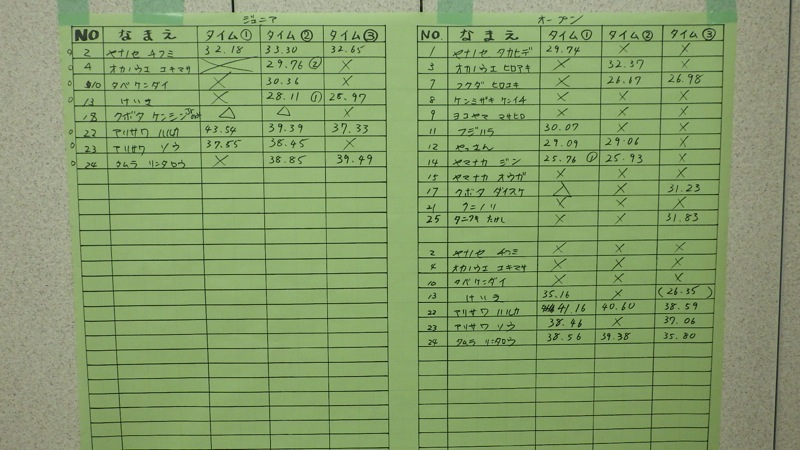 ジュニア
NO なまえ タイム① タイム② タイム③
2 ヤナノセ 32.18 33.30 32.65
4 オカノウエ ユキマサ × 29.76 ② ×
10 タベ ケンダイ × 30.36 ×
13 けいき × 28.11 ① 28.97
18 クボタ ケンシン △ △ ×
22 アリサワ ハルカ 43.54 39.39 37.33
23 アリサワ ソウ 37.55 38.45 ×
24 ウムラ リンタロウ × 38.85 39.49
オープン
NO なまえ タイム① タイム② タイム③
1 ヤナノセ タカヒデ 29.74 × ×
3 オカノウエ ヒロアキ × 32.37 ×
7 フクダ ヒロユキ × 26.67 26.98
8 ケンミザキ ケンイチ × × ×
9 ヨコヤマ マサヒロ × × ×
11 フジハラ 30.07 × ×
12 やっさん 29.09 29.06 ×
14 ヤマナカ ジン 25.76 ① 25.93 ×
15 ヤマナカ オウガ × × ×
17 クボタ ダイスケ △ × 31.23
21 クニノリ × × ×
25 タニワキ たけし × × 31.83
2 ヤナノセ × × ×
4 オカノウエ ユキマサ × × ×
10 タベ ケンダイ × × ×
13 35.16 × (26.35)
22 アリサワ ハルカ 41.16 40.60 38.59
23 アリサワ ソウ 38.46 × 37.06
24 ウムラ リンタロウ 38.56 39.38 35.80